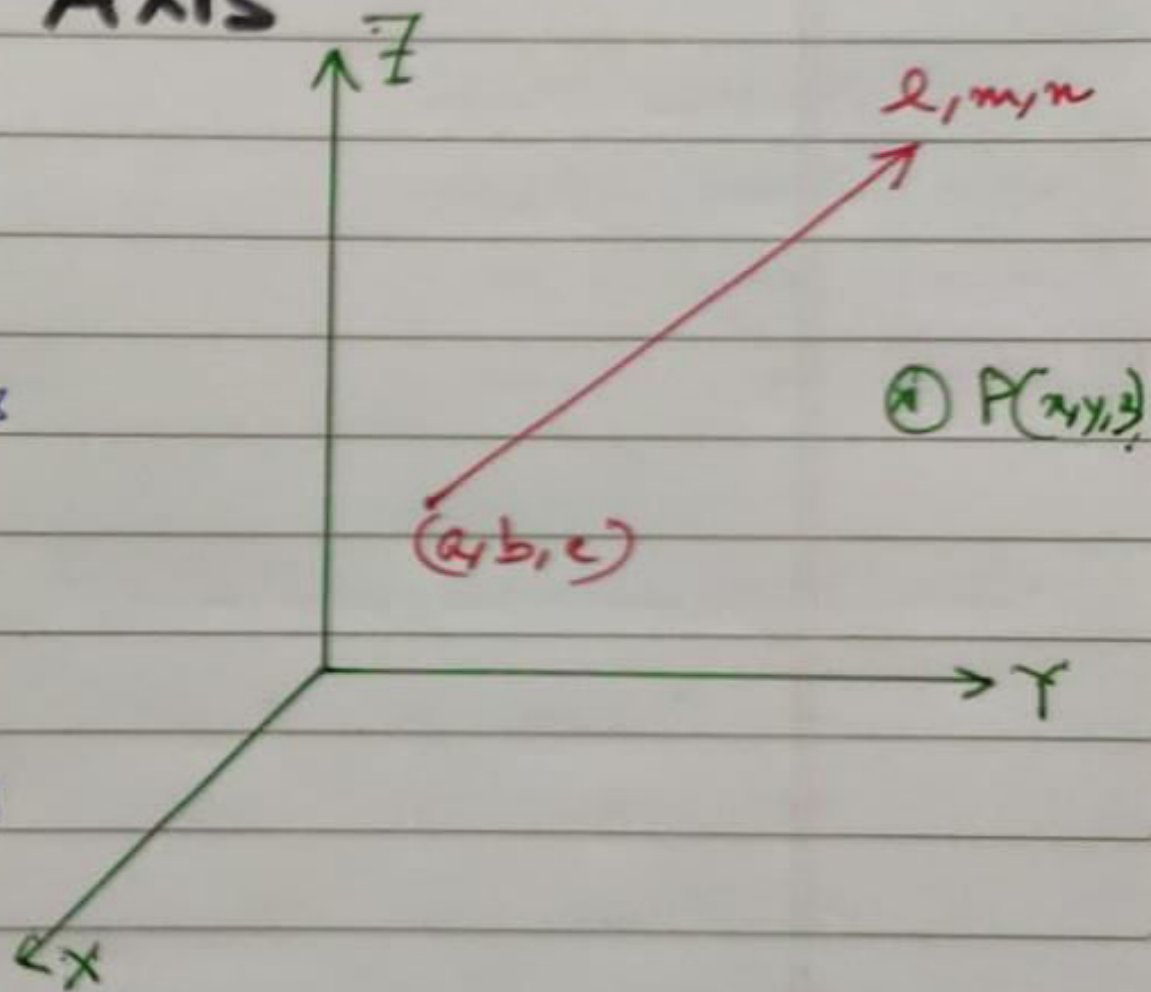 Axis
Z
l, m, n
P(x, y, z)
(a, b, c)
Y
X